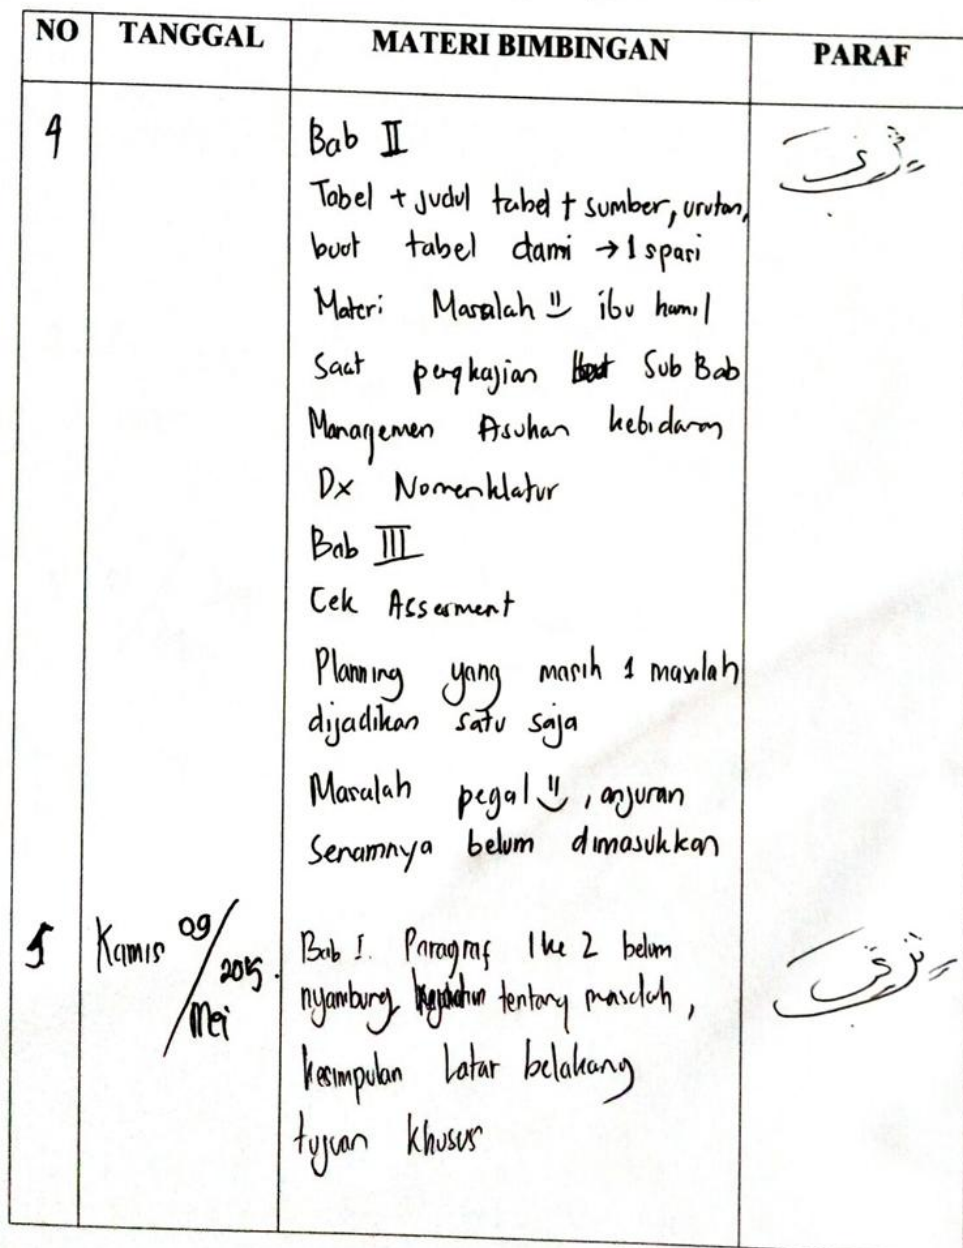 NO TANGGAL MATERI BIMBINGAN PARAF
4 Bab II
Tabel + judul tabel + sumber, urutan,
buat tabel dami → 1 spasi
Materi Masalah" ibu hamil
Saat pengkajian Sub Bab
Managemen Asuhan kebidanan
Dx Nomenklatur
Bab III
Cek Assesment
Planning yang masih 1 masalah
dijadikan satu saja
Masalah pegal", anjuran
Senamnya belum dimasukkan
5 Kamis 09/Mei Bab I. Paragraf 1 ke 2 belum
nyambung, tentang masalah,
kesimpulan Latar belakang
tujuan khusus